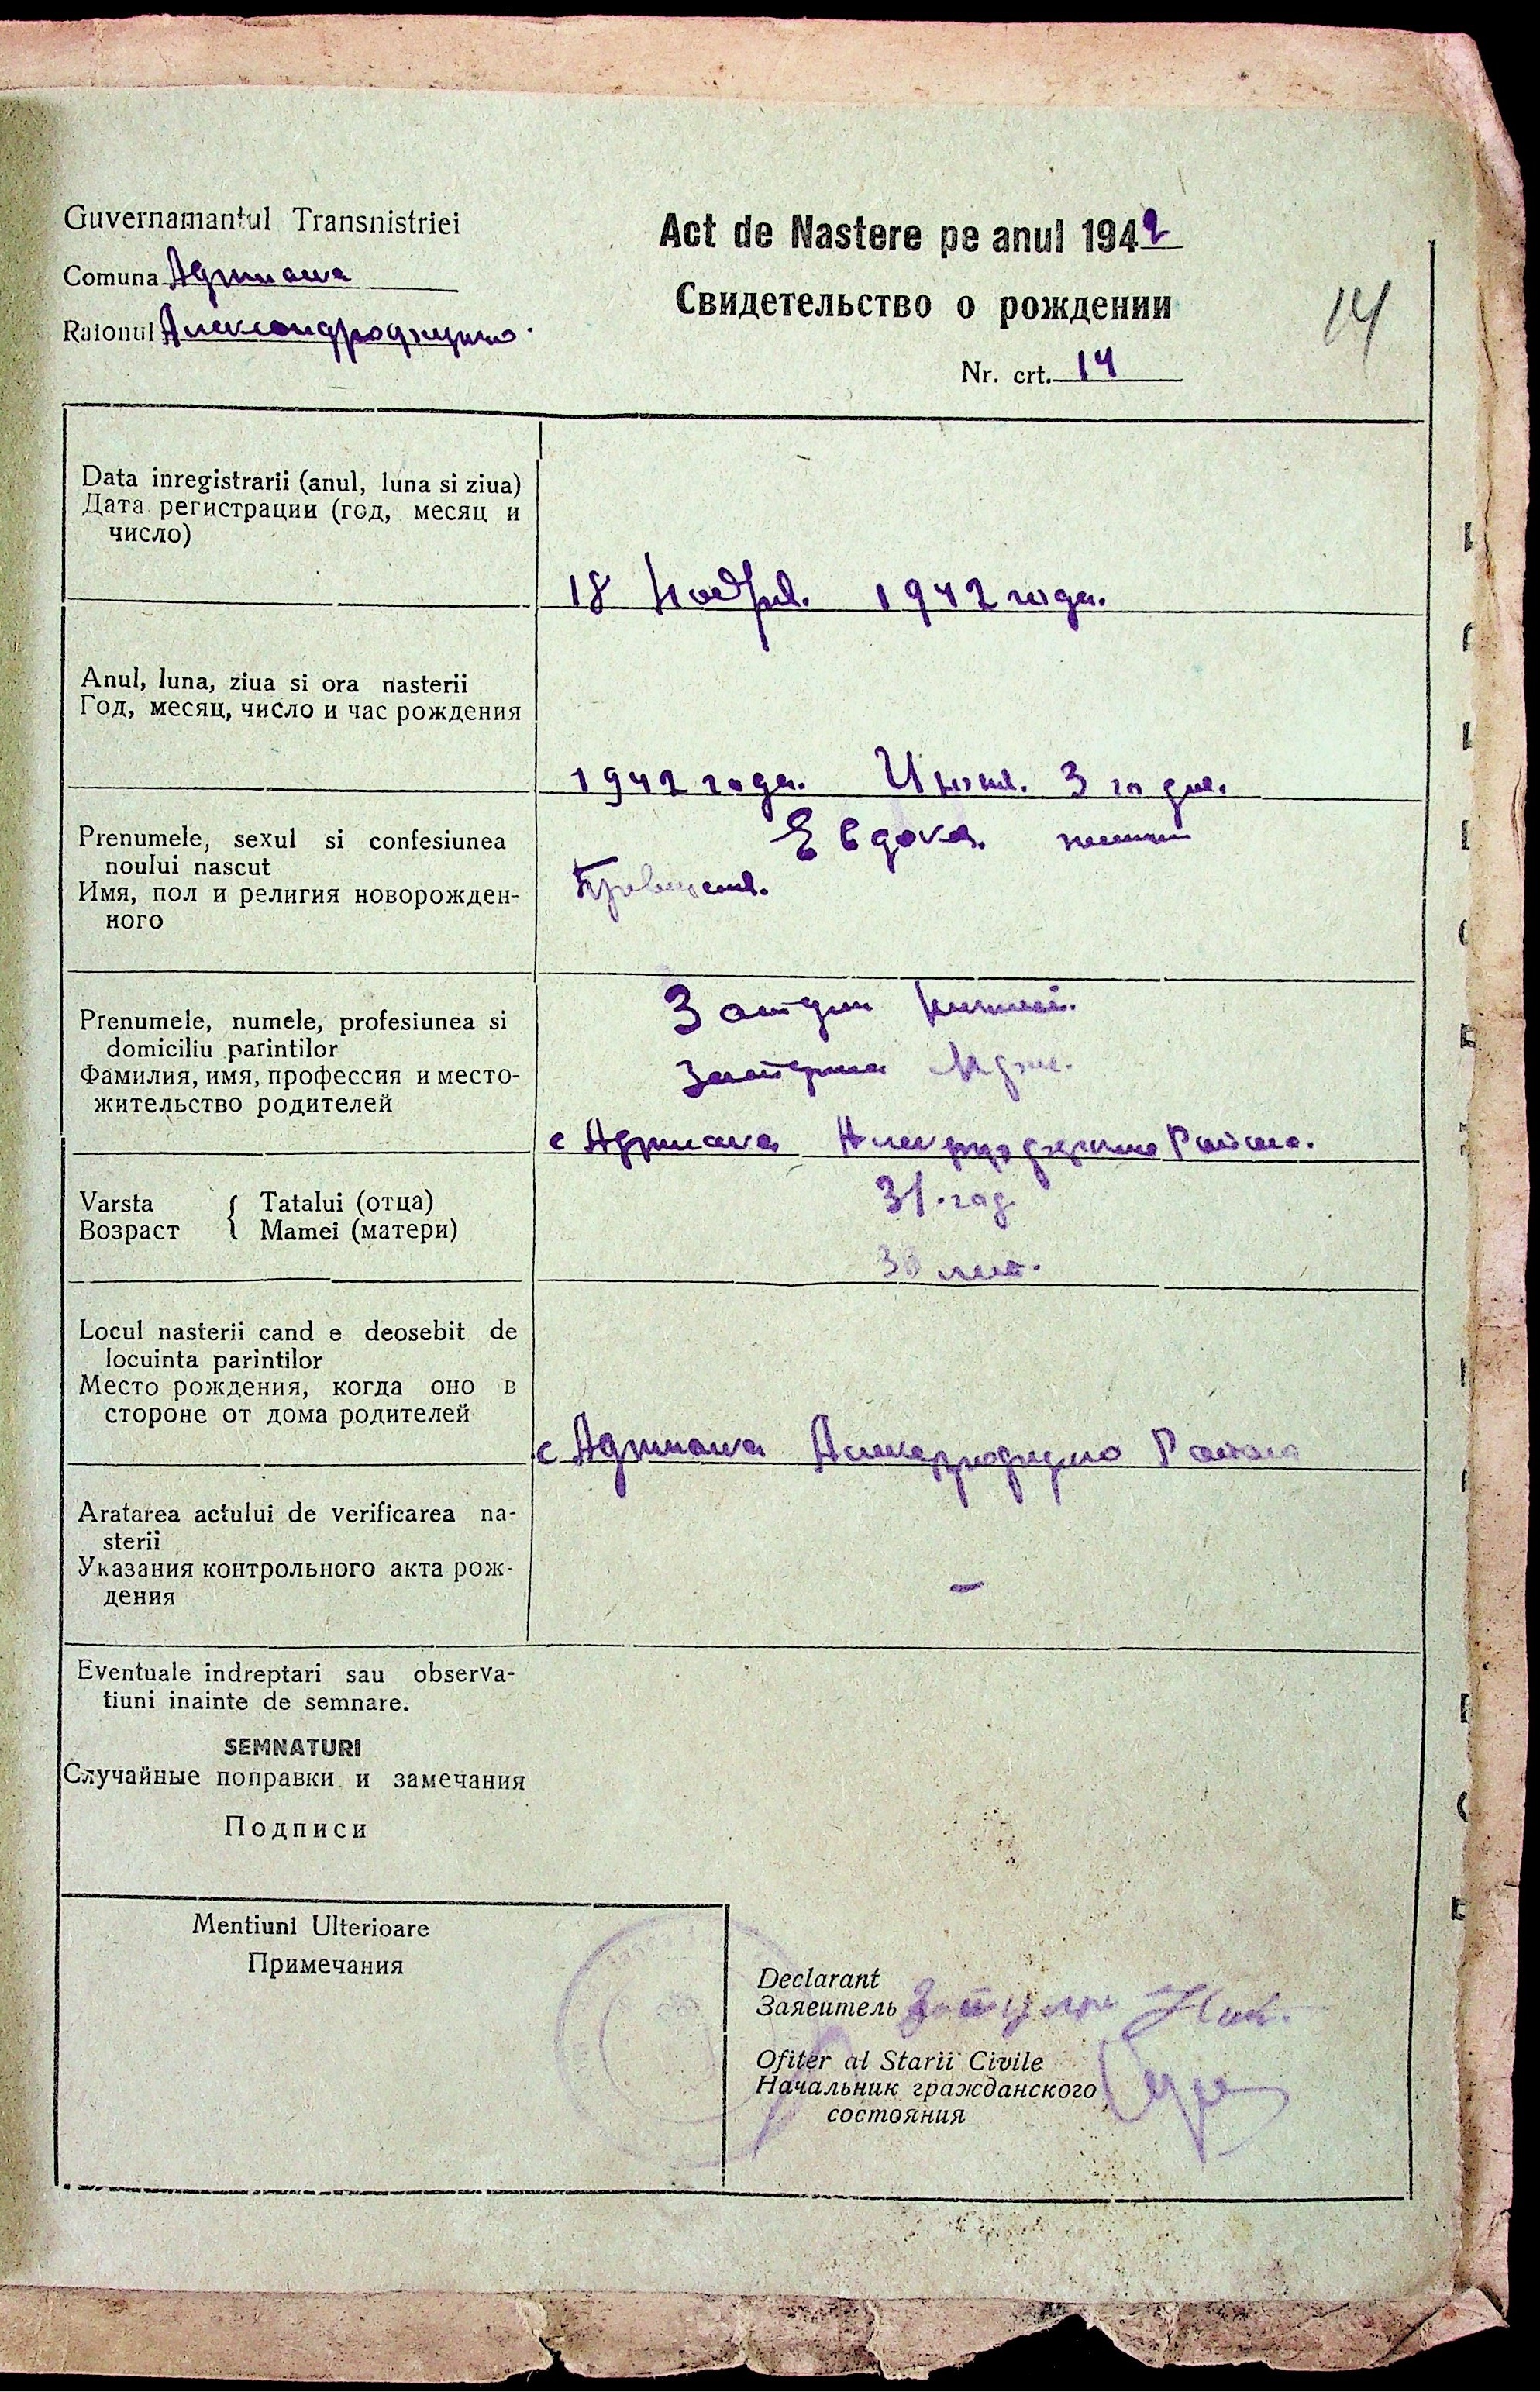 Guvernamantul Transnistriei
Comuna Адриана
Raionul Александродарино
Act de Nastere pe anul 1942
Свидетельство о рождении
Nr. crt. 14
14
Data inregistrarii (anul, luna si ziua)
Дата регистрации (год, месяц и
число)
18 Ноября. 1942 года.
Anul, luna, ziua si ora nasterii
Год, месяц, число и час рождения
1942 года. Июня. 3 го дня.
Prenumele, sexul si confesiunea
noului nascut
Имя, пол и религия новорожден-
ного
Евдокя.
Prenumele, numele, profesiunea si
domiciliu parintilor
Фамилия, имя, профессия и место-
жительство родителей
с Адриана Района.
Varsta
Возраст
Tatalui (отца)
Mamei (матери)
31.год
лет.
Locul nasterii cand e deosebit de
locuinta parintilor
Место рождения, когда оно в
стороне от дома родителей
с Адриана Района
Aratarea actului de verificarea na-
sterii
Указания контрольного акта рож-
дения
–
Eventuale indreptari sau observa-
tiuni inainte de semnare.
SEMNATURI
Случайные поправки и замечания
Подписи
Mentiuni Ulterioare
Примечания
Declarant
Заяеитель
Ofiter al Starii Civile
Начальник гражданского
состояния